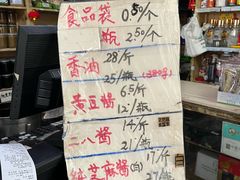 食品袋 0.50/个
瓶 2.50/个
香油 28/斤
25/瓶
黄豆酱 6.5/斤
12/瓶
二八酱 14/斤
21/瓶
纯芝麻酱(白) 17/斤